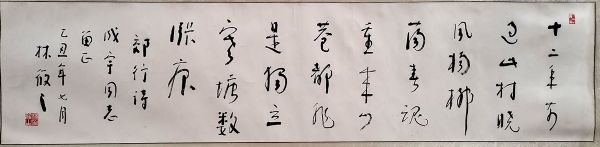 十二年前
過此村曉
風楊柳
蕩春魂
重來門
巷都非
是獨立
寒塘數
漲痕
郊行詩
成宇同志
留正
乙丑年七月
林筱之